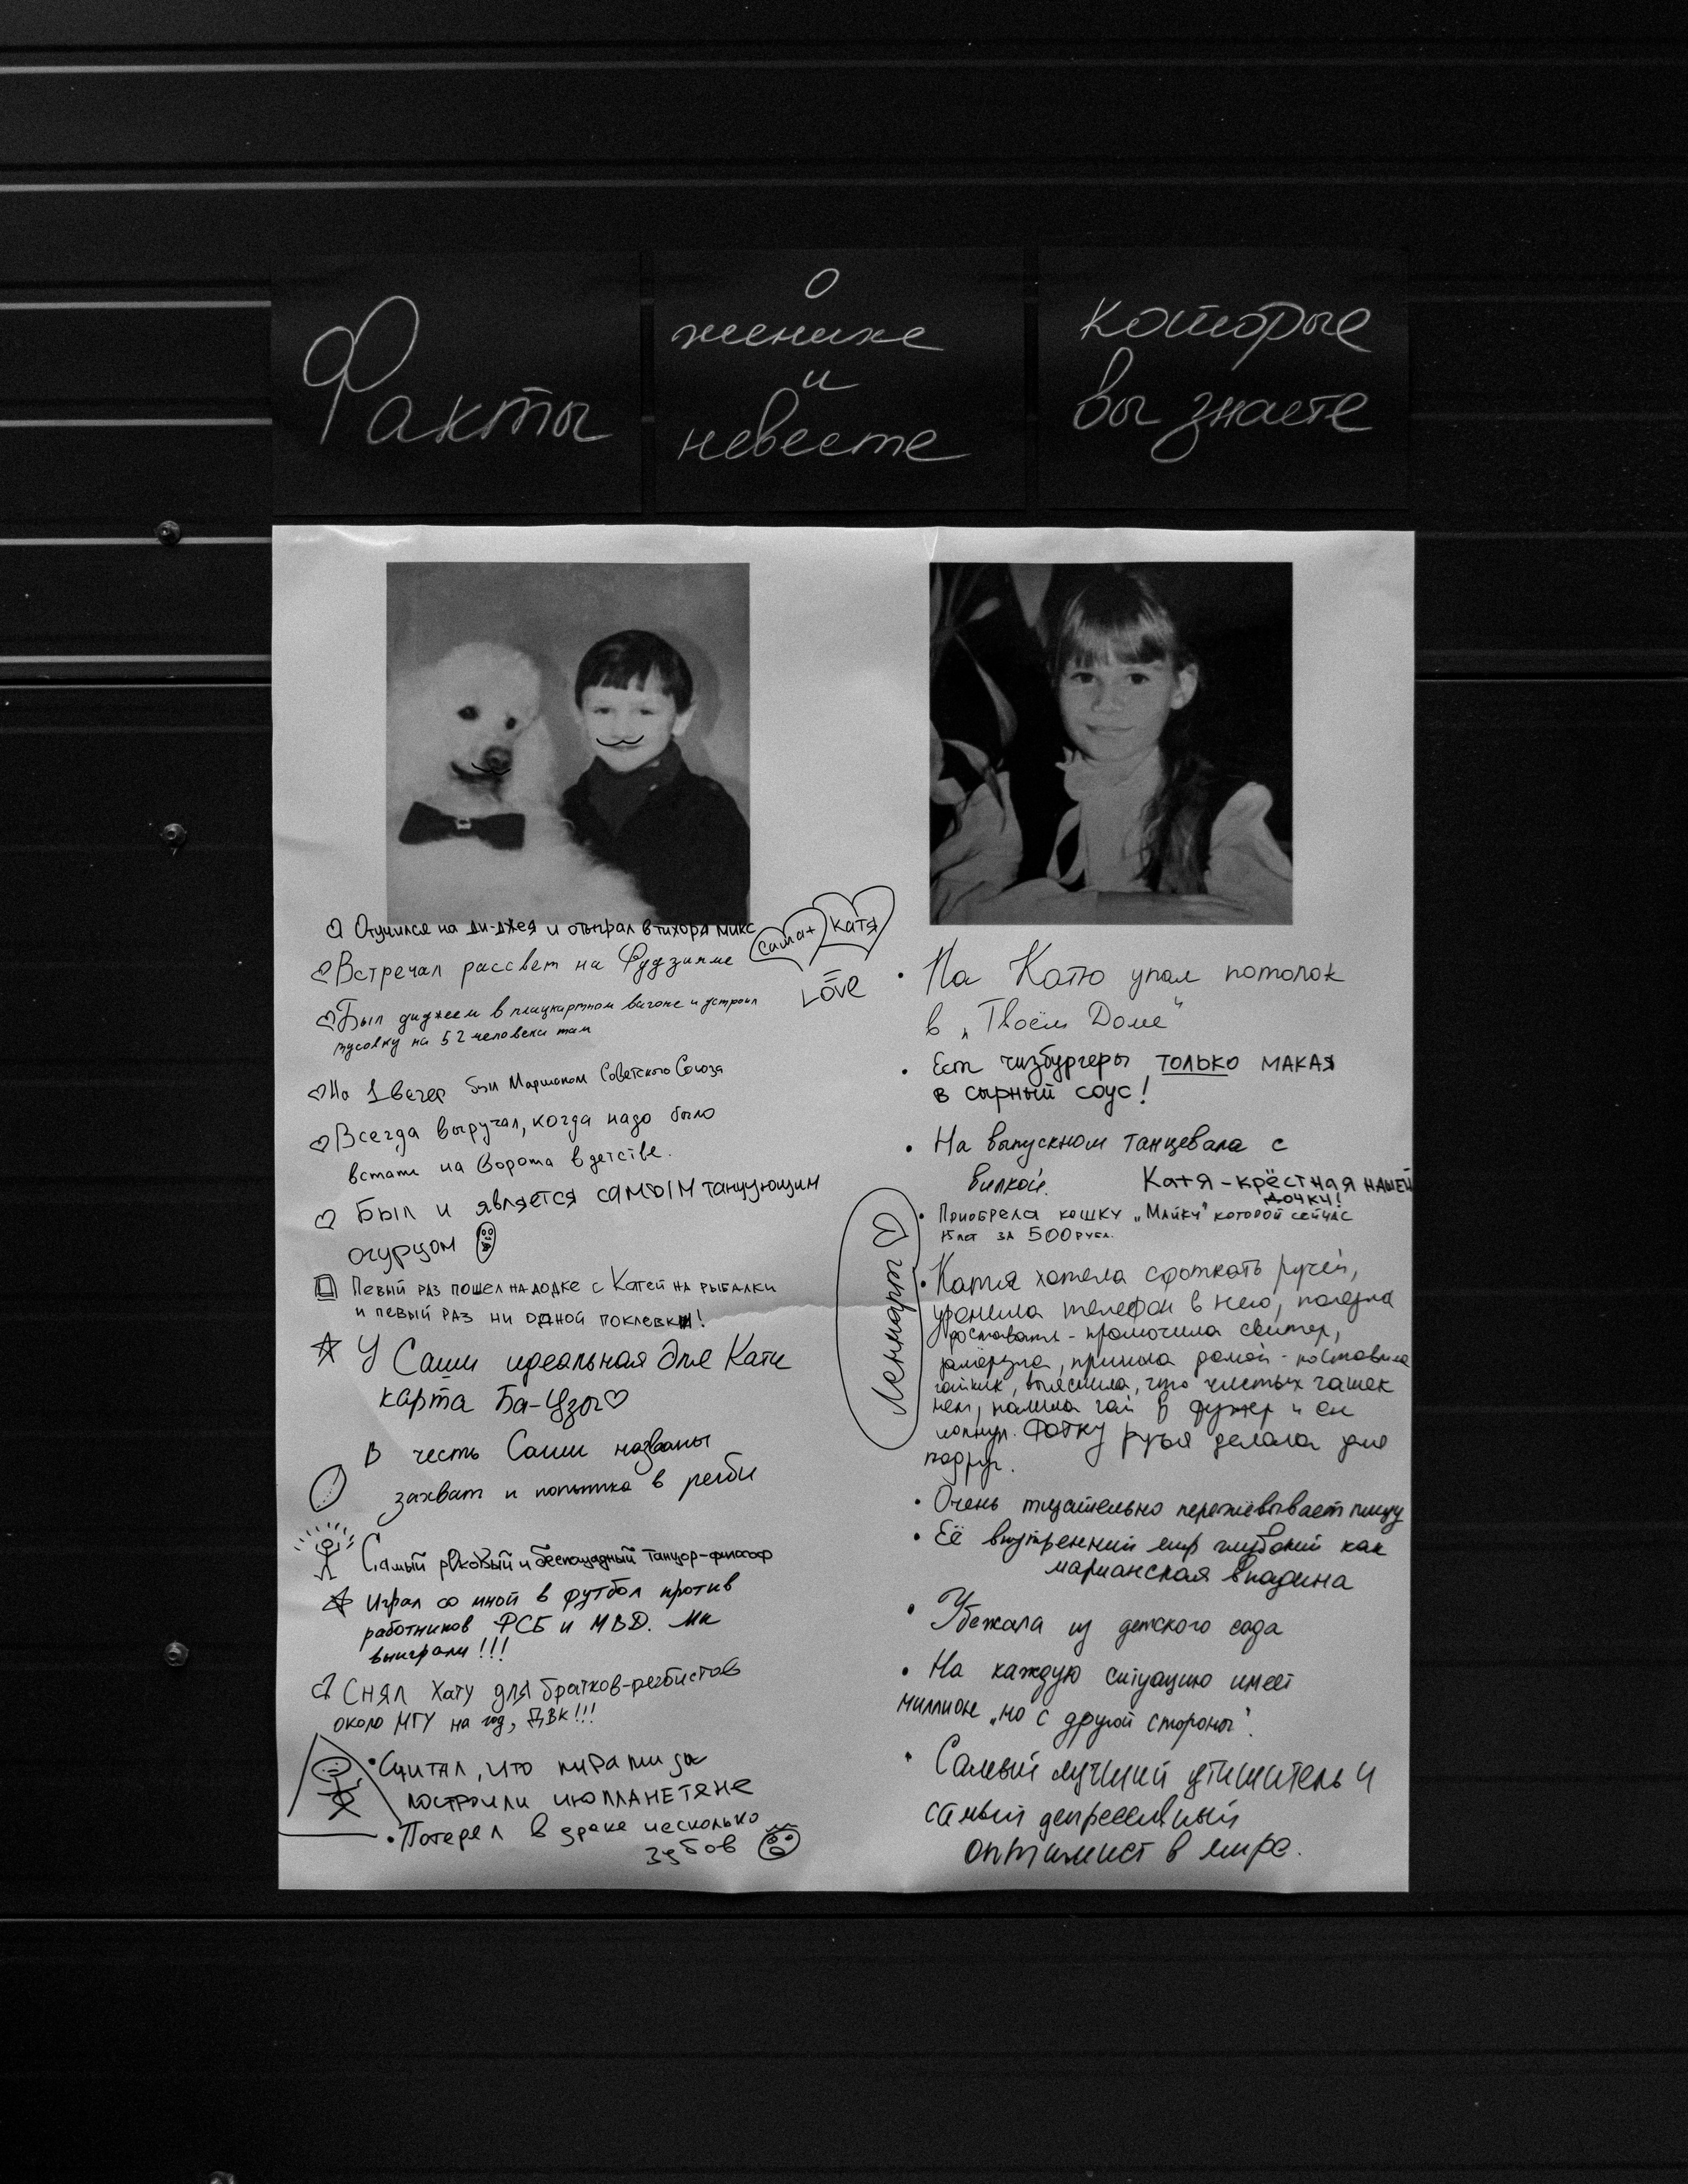 Факты
о
женихе
и
невесте
которые
вы знаете
Отучился на ди-джея и отыграл в тихора микс
Встречал рассвет на Фудзияме
Был диджеем в плацкартном вагоне и устроил
тусовку на 52 человека там
На 1 вечер был Маршалом Советского Союза
Всегда выручал, когда надо было
встать на ворота в детстве.
Был и является самым танцующим
огурцом
Певый раз пошел на лодке с Катей на рыбалки
и певый раз ни одной поклевки!
У Саши идеальная для Кати
карта Ба-Цзы
В честь Саши названы
захват и попытка в регби
Самый роковый и беспощадный танцор-философ
Играл со мной в футбол против
работников ФСБ и МВД. Мы
выиграли!!!
Снял хату для братков-регбистов
около МГУ на год, ДВК!!!
• Считал, что пирамиды
построили инопланетяне
• Потерял в драке несколько
зубов
Саша+
Катя
Love
• На Катю упал потолок
в „Твоём Доме"
• Ест чизбургеры ТОЛЬКО макая
в сырный соус!
• На выпускном танцевала с
вилкой.
Катя - крёстная нашей
дочки!
• Приобрела кошку „Майку" которой сейчас
15 лет за 500 рубл.
Леннарт
• Катя хотела сфоткать ручей,
уронила телефон в него, полезла
доставать - промочила свитер,
замёрзла, пришла домой - поставила
чайник, выяснила, что чистых чашек
нет, налила чай в фужер и он
лопнул. Фотку ручья делала для
подруг.
• Очень тщательно пережёвывает пищу
• Её внутренний мир глубокий как
марианская впадина
• Убежала из детского сада
• На каждую ситуацию имеет
миллион „но с другой стороны".
• Самый лучший утишитель и
самый депрессивный
оптимист в мире.